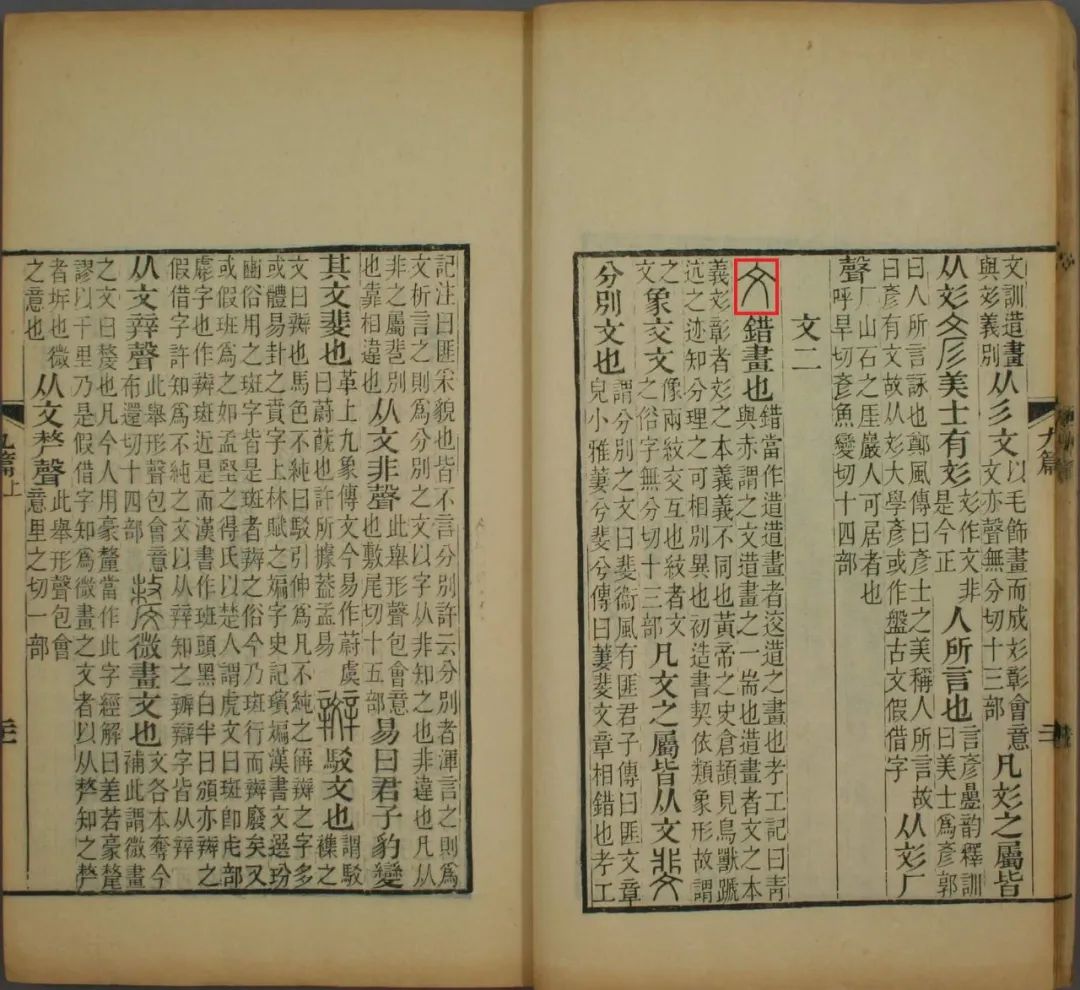 文訓造畫
與彣義別
从彡文
以毛飾畫而成彣彰會意
文亦聲無分切十三部
凡彣之屬皆
从彣彥美士有彣
彣作文非
是今正
人所言也
言彥疊韵釋訓
曰美士爲彥郭
曰人所言詠也鄭風傳曰彥士之美稱人所言故
曰彥有文故从彣大學彥或作盤古文假借字
从彣厂
聲
厂山石之厓巖人可居者也
呼旱切彥魚變切十四部
文二
文錯畫也
錯當作造造畫者䢒造之畫也考工記曰青
與赤謂之文造畫之一耑也造畫者文之本
義彣彰者彣之本義義不同也黃帝之史倉頡見鳥獸蹏
迒之迹知分理之可相別異也初造書契依類象形故謂
之
文
象交文
像兩紋交互也紋者文
之俗字無分切十三部
凡文之屬皆从文斐
分別文也
謂分別之文曰斐衞風有匪君子傳曰匪文章
皃小雅萋兮斐兮傳曰萋斐文章相錯也考工
九篇
記注曰匪采貌也皆不言分別許云分別者渾言之則爲
文析言之則爲分別之文以字从非知之也非違也凡从
非之屬別
也靠相違也
从文非聲
此舉形聲包會意
也敷尾切十五部
易曰君子豹變
其文斐也
革上九象傳文今易作蔚虞
曰蔚蔇也許所據蓋孟易
辬駁文也
謂駁
襍之
文曰辬也馬色不純曰駁引伸爲凡不純之偁辬之字多
或體易卦之賁字上林賦之斒字史記璸斒漢書文選玢
豳俗用之斑字皆是斑者辬之俗今乃班行而辬廢矣又
或假班爲之如孟堅之得氏以楚人謂虎文曰斑卽虍部
虨字也作辬斑近是而漢書作班頭黑白半曰頒亦辬之
假借字許知爲不純之文以从辡知之瓣辯字皆从辡
从文辡聲
此舉形聲包會意
布還切十四部
微畫文也
文各本奪今
補此謂微畫
之文曰𣁛也凡今人用豪釐當作此字經解曰差若豪釐
謬以千里乃是假借字知爲微畫之文者以从𠩺知之𠩺
者坼也微
之意也
从文𠩺聲
此舉形聲包會
意里之切一部
九篇上